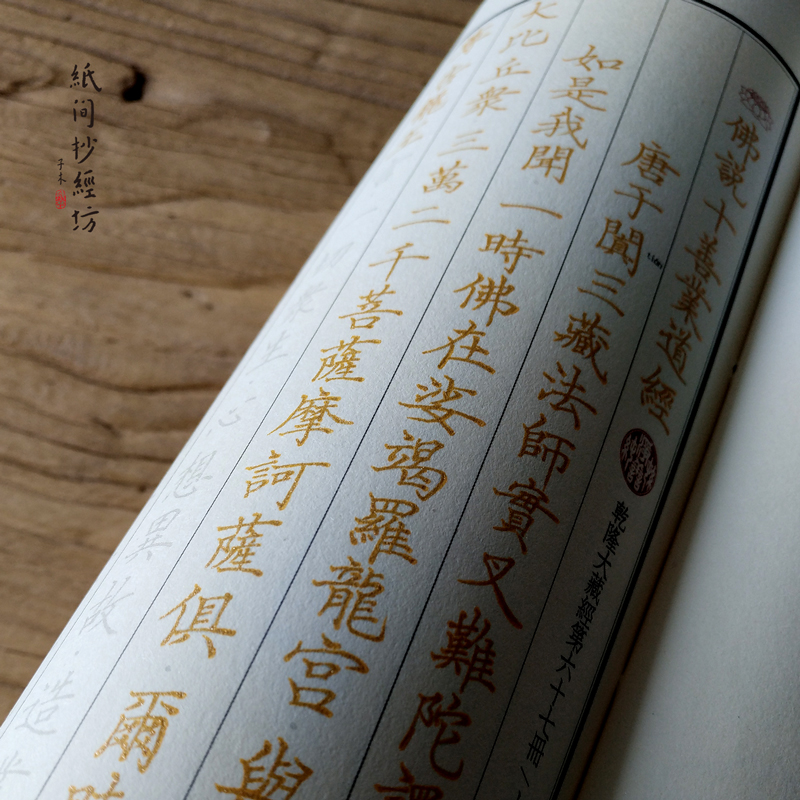 紙间抄經坊
佛説十善業道經
乾隆大藏經第六十七冊
唐于闐三藏法師實叉難陀譯
tián
如是我聞一時佛在娑竭羅龍宮與
大比丘衆三萬二千菩薩摩訶薩俱爾時
切衆生心想異故造